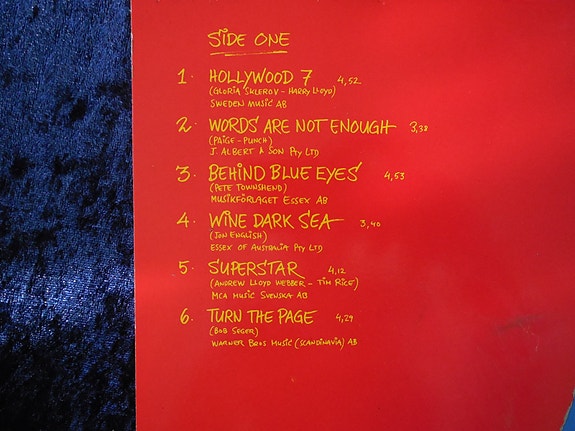 SIDE ONE
1. HOLLYWOOD 7 4,52
(GLORIA SKLEROV - HARRY LLOYD)
SWEDEN MUSIC AB
2. WORDS ARE NOT ENOUGH 3,38
(PAIGE - PUNCH)
J. ALBERT & SON PTY LTD
3. BEHIND BLUE EYES 4,53
(PETE TOWNSHEND)
MUSIKFÖRLAGET ESSEX AB
4. WINE DARK SEA 3,40
(JON ENGLISH)
ESSEX OF AUSTRALIA PTY LTD
5. SUPERSTAR 4,12
(ANDREW LLOYD WEBBER - TIM RICE)
MCA MUSIC SVENSKA AB
6. TURN THE PAGE 4,29
(BOB SEGER)
WARNER BROS MUSIC (SCANDINAVIA) AB